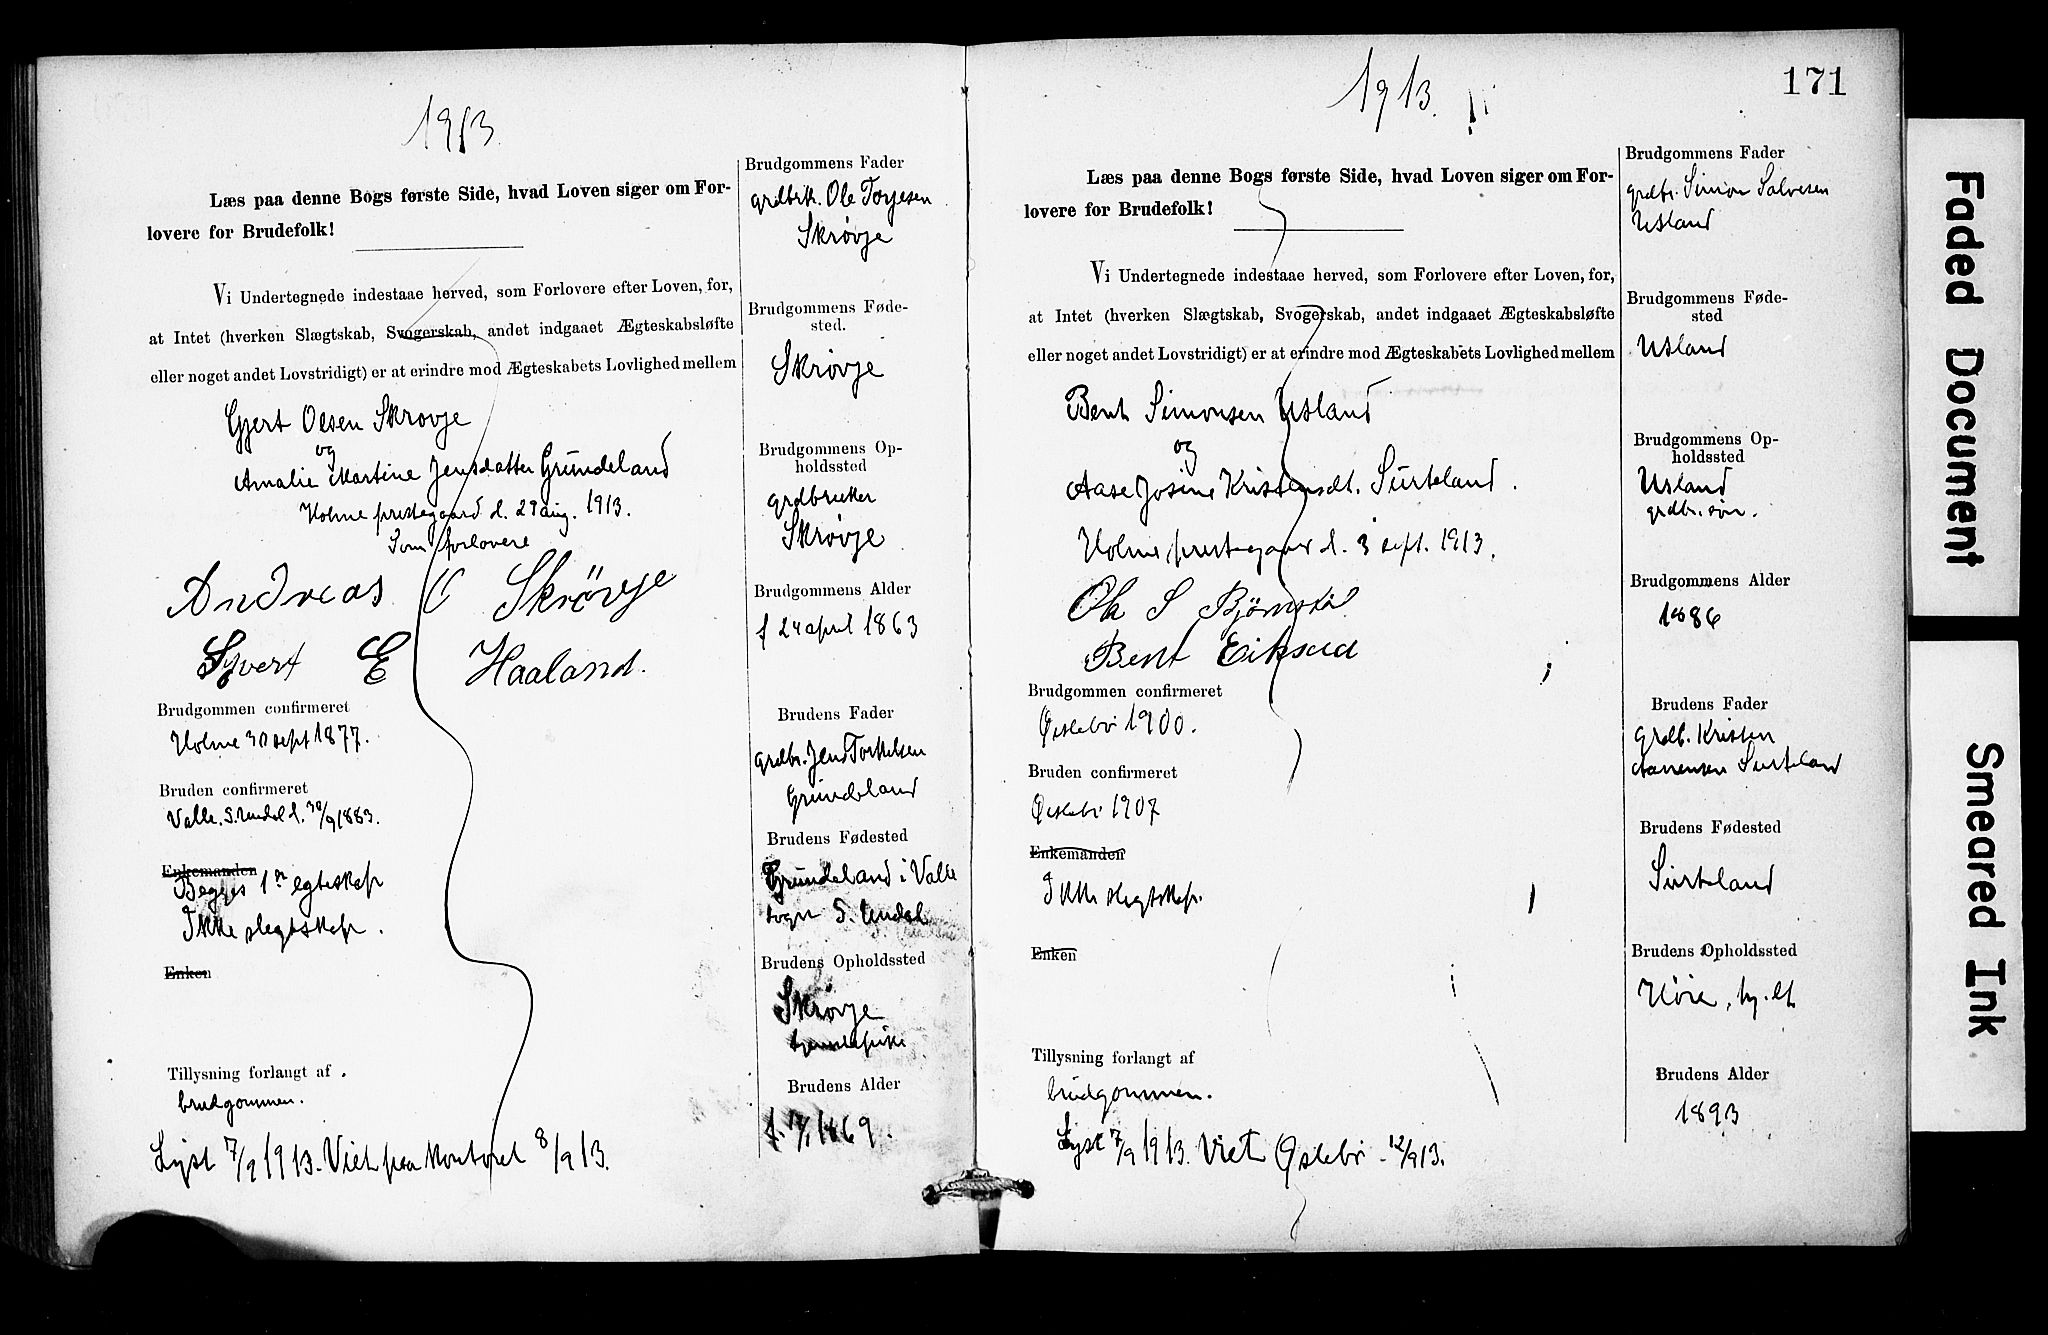 1913.
Læs paa denne Bogs første Side, hvad Loven siger om For-
lovere for Brudefolk!
Vi Undertegnede indestaae herved, som Forlovere efter Loven, for,
at Intet (hverken Slægtskab, Svogerskab, andet indgaaet Ægteskabsløfte
eller noget andet Lovstridigt) er at erindre mod Ægteskabets Lovlighed mellem
Gjert Olsen Skrøvje
og
Amalie Martine Jensdatter Grundeland
Holme prestegaard d. 27 aug. 1913.
Som forlovere
Andreas O Skrövje
Syvert E Haaland.
Brudgommen confirmeret
Holme 30 sept 1877.
Bruden confirmeret
Valle, S. Undal d. 30/9 1883.
Enkemanden
Begges 1ste egteskap
Ikke slegtskap.
Enken
Tillysning forlangt af
brudgommen.
Lyst 7/9 1913. Viet paa kontoret 8/9 13.
Brudgommens Fader
grdbrk. Ole Torjesen
Skrøvje
Brudgommens Føde-
sted.
Skrøvje
Brudgommens Op-
holdssted
grdbruker
Skrøvje
Brudgommens Alder
f 24 april 1863
Brudens Fader
grdbr. Jens Torkelsen
Grundeland
Brudens Fødested
Grundeland i Valle
sogn S. Undal
Brudens Opholdssted
Skrøvje
Brudens Alder
1869.
1913.
171
Læs paa denne Bogs første Side, hvad Loven siger om For-
lovere for Brudefolk!
Vi Undertegnede indestaae herved, som Forlovere efter Loven, for,
at Intet (hverken Slægtskab, Svogerskab, andet indgaaet Ægteskabsløfte
eller noget andet Lovstridigt) er at erindre mod Ægteskabets Lovlighed mellem
Bent Simonsen Usland
og
Aase Josine Kristensdt. Surteland.
Holme prestegaard d. 3 sept. 1913.
Ole S Bjørnstøl
Bent Eiksaa
Brudgommen confirmeret
Øislebø 1900.
Bruden confirmeret
Øislebø 1907
Enkemanden
Ikke slegtskap.
Enken
Tillysning forlangt af
brudgommen.
Lyst 7/9 1913. Viet Øslebø 12/9 13.
Brudgommens Fader
grdbr. Simon Salvesen
Usland
Brudgommens Føde-
sted
Usland
Brudgommens Op-
holdssted
Usland
grdbr. søn.
Brudgommens Alder
1886
Brudens Fader
grdb. Kristen
Aanensen Surteland
Brudens Fødested
Surteland
Brudens Opholdssted
Brudens Alder
1893
Faded Document
Smeared Ink